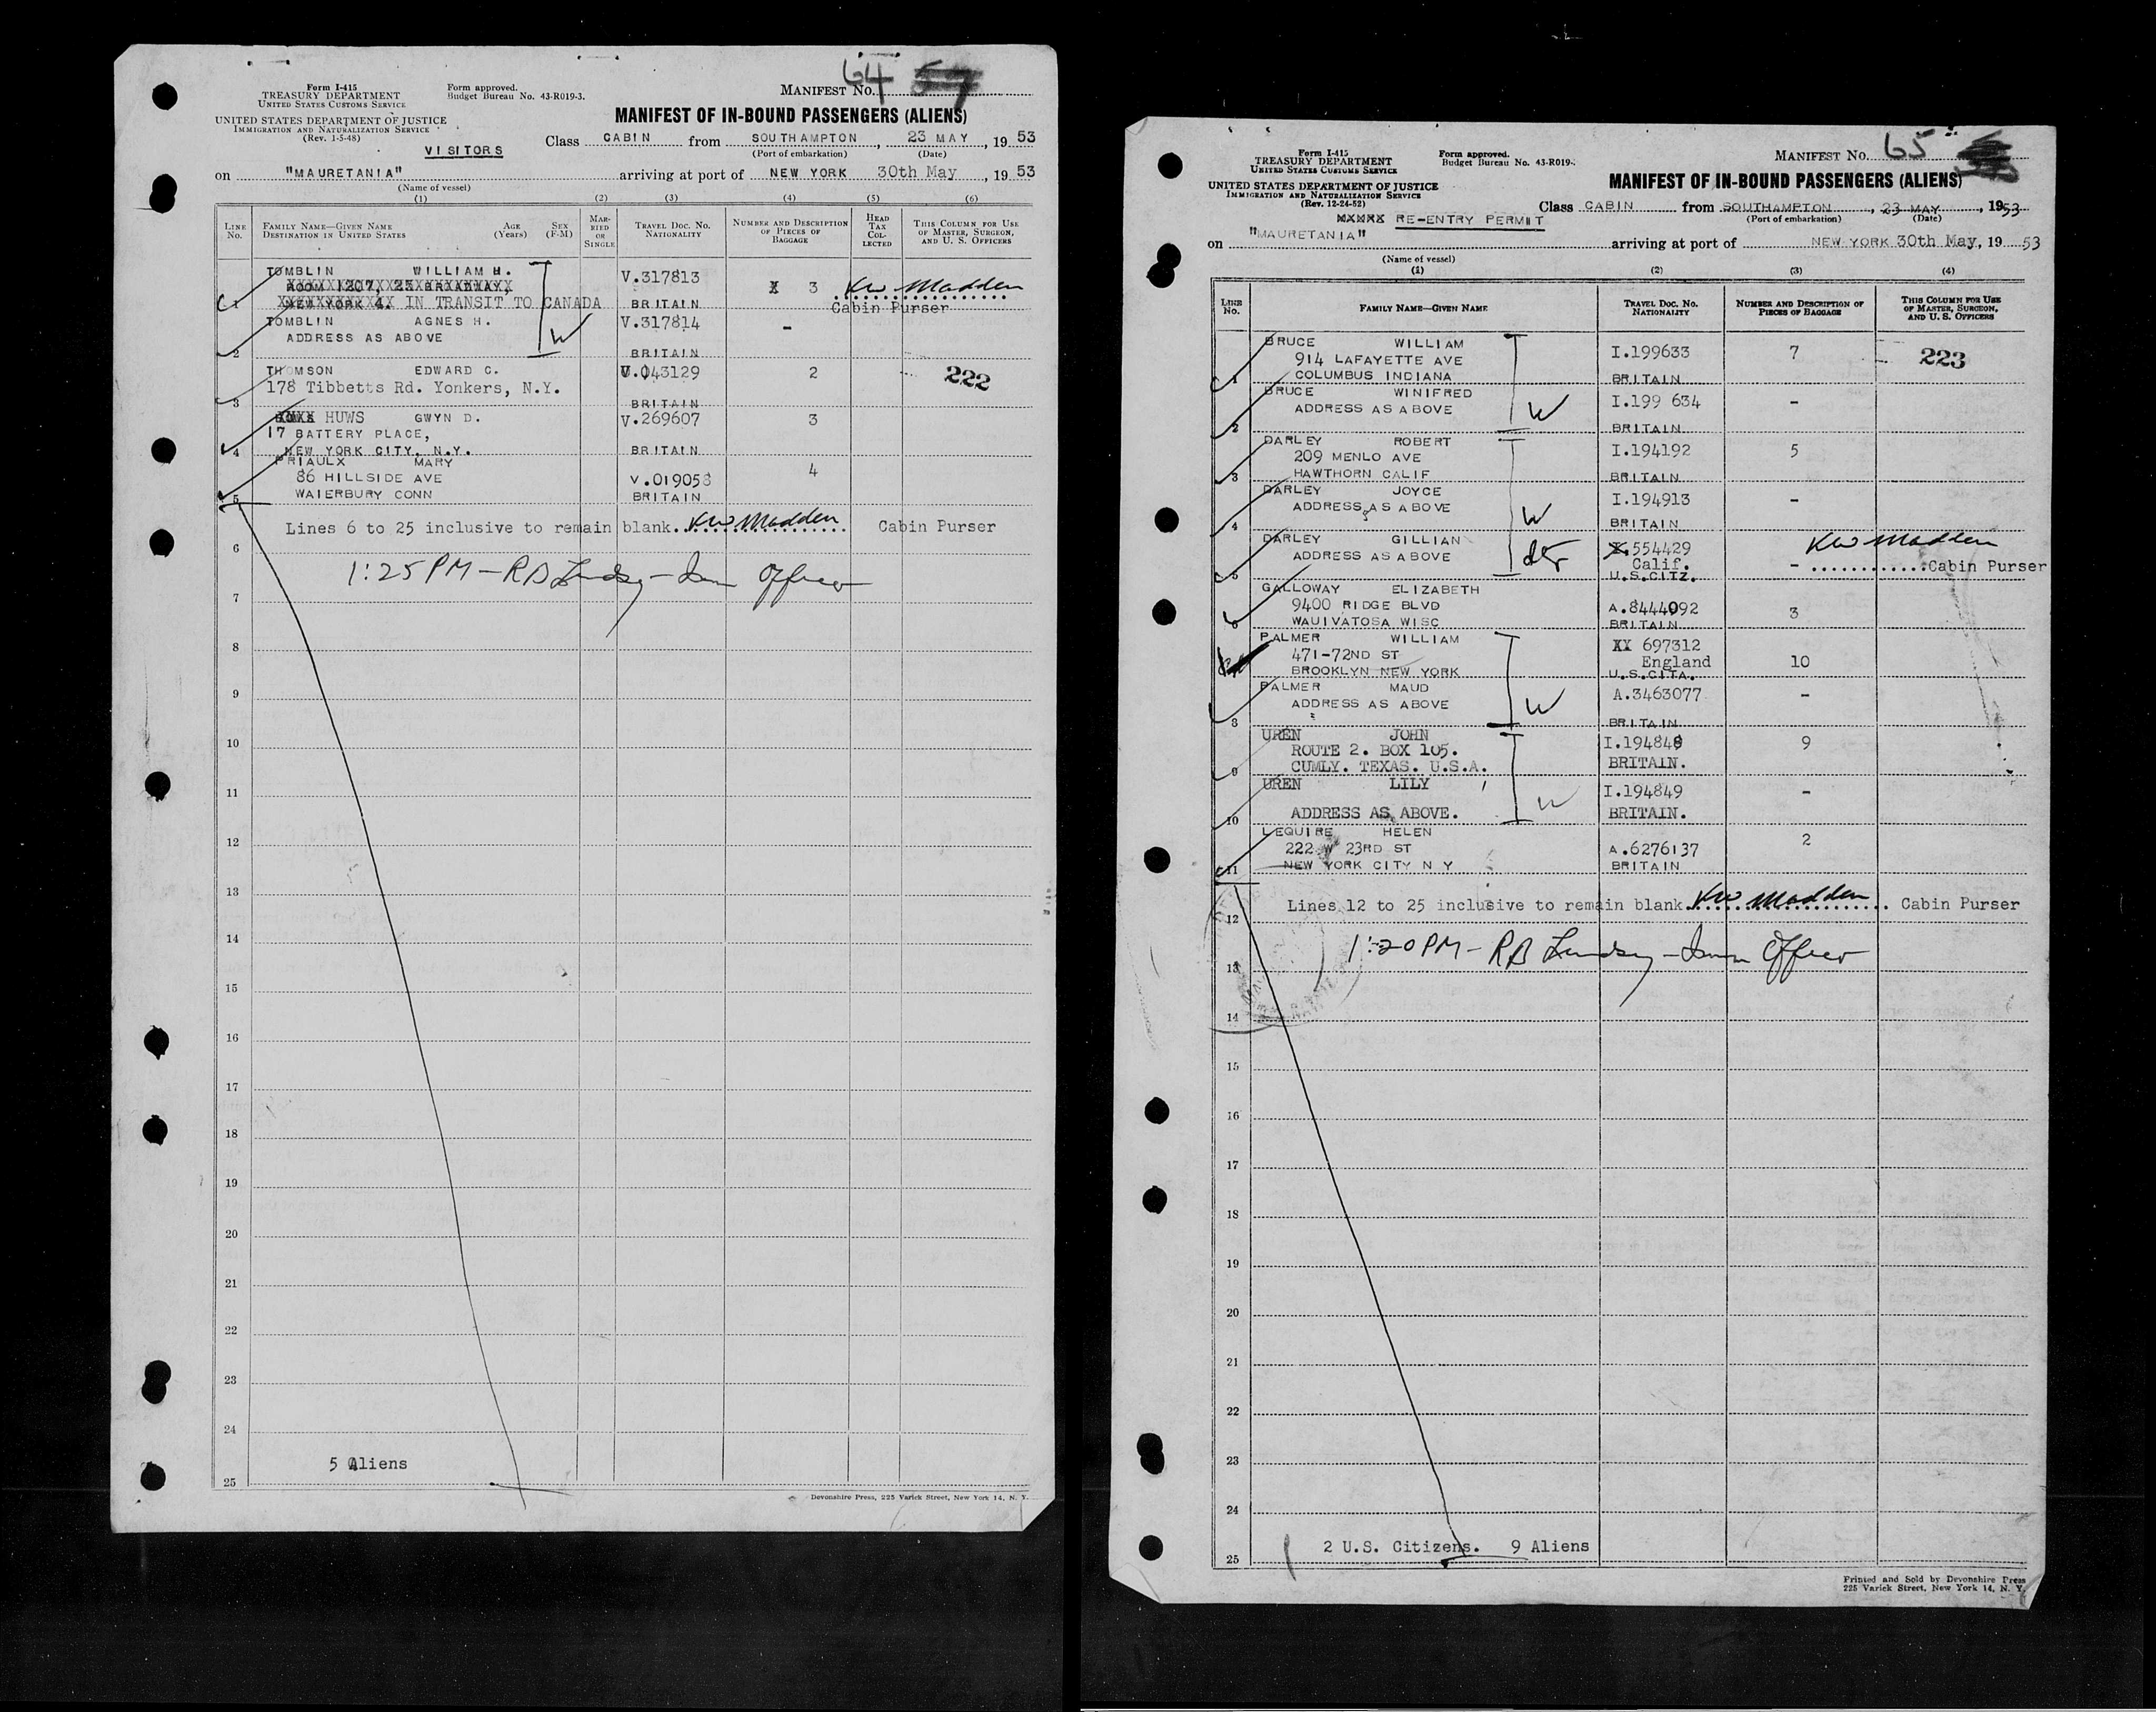 64
Form I-415
TREASURY DEPARTMENT
UNITED STATES CUSTOMS SERVICE
Form approved.
Budget Bureau No. 43-R019-3.
MANIFEST No.
UNITED STATES DEPARTMENT OF JUSTICE
IMMIGRATION AND NATURALIZATION SERVICE
(Rev. 1-5-48)
MANIFEST OF IN-BOUND PASSENGERS (ALIENS)
VISITORS
Class CABIN from SOUTHAMPTON, 23 MAY, 19 53
(Port of embarkation) (Date)
on "MAURETANIA" arriving at port of NEW YORK 30th May, 19 53
(Name of vessel)
(1) (2) (3) (4) (5) (6)
LINE No. FAMILY NAME—GIVEN NAME DESTINATION IN UNITED STATES AGE (Years) SEX (F-M) MARRIED OR SINGLE TRAVEL DOC. NO. NATIONALITY NUMBER AND DESCRIPTION OF PIECES OF BAGGAGE HEAD TAX COLLECTED THIS COLUMN FOR USE OF MASTER, SURGEON, AND U. S. OFFICERS
TOMBLIN WILLIAM H. V.317813 3 KW Madden
ROOM 1207, 25 BROADWAY,
1 NEW YORK 4. IN TRANSIT TO CANADA BRITAIN Cabin Purser
TOMBLIN AGNES H. V.317814 -
ADDRESS AS ABOVE W
2 BRITAIN
THOMSON EDWARD C. V.043129 2 222
178 Tibbetts Rd. Yonkers, N.Y.
3 BRITAIN
HUWS GWYN D. V.269607 3
17 BATTERY PLACE,
4 NEW YORK CITY, N.Y. BRITAIN
PRIAULX MARY 4
86 HILLSIDE AVE V.019058
5 WATERBURY CONN BRITAIN
Lines 6 to 25 inclusive to remain blank. KW Madden Cabin Purser
6
1:25 PM - RB Lindsey - Imm Officer
7
8
9
10
11
12
13
14
15
16
17
18
19
20
21
22
23
24
5 Aliens
25
Devonshire Press, 225 Varick Street, New York 14, N. Y.
65
Form I-415
TREASURY DEPARTMENT
UNITED STATES CUSTOMS SERVICE
Form approved.
Budget Bureau No. 43-R019-.
MANIFEST No.
UNITED STATES DEPARTMENT OF JUSTICE
IMMIGRATION AND NATURALIZATION SERVICE
(Rev. 12-24-52)
MANIFEST OF IN-BOUND PASSENGERS (ALIENS)
RE-ENTRY PERMIT
Class CABIN from SOUTHAMPTON, 23 MAY, 1953
(Port of embarkation) (Date)
on "MAURETANIA" arriving at port of NEW YORK 30th May, 19 53
(Name of vessel)
(1) (2) (3) (4)
LINE No. FAMILY NAME—GIVEN NAME TRAVEL DOC. NO. NATIONALITY NUMBER AND DESCRIPTION OF PIECES OF BAGGAGE THIS COLUMN FOR USE OF MASTER, SURGEON, AND U. S. OFFICERS
BRUCE WILLIAM I.199633 7 223
914 LAFAYETTE AVE
1 COLUMBUS INDIANA BRITAIN
BRUCE WINIFRED I.199 634 -
ADDRESS AS ABOVE W
2 BRITAIN
DARLEY ROBERT I.194192 5
209 MENLO AVE
3 HAWTHORN CALIF BRITAIN
DARLEY JOYCE I.194913 -
ADDRESS AS ABOVE W
4 BRITAIN
DARLEY GILLIAN 554429 KW Madden
ADDRESS AS ABOVE dtr Calif. - Cabin Purser
5 U.S.CITZ.
GALLOWAY ELIZABETH
9400 RIDGE BLVD A.8444092 3
6 WAUIVATOSA WISC BRITAIN
PALMER WILLIAM XX 697312
471-72ND ST England 10
BROOKLYN NEW YORK U.S.CITA.
PALMER MAUD A.3463077 -
ADDRESS AS ABOVE W
8 BRITAIN
UREN JOHN I.194848 9
ROUTE 2. BOX 105.
9 CUMLY. TEXAS. U.S.A. BRITAIN.
UREN LILY I.194849 -
W
10 ADDRESS AS ABOVE. BRITAIN.
LEQUIRE HELEN 2
222 W 23RD ST A.6276137
11 NEW YORK CITY N Y BRITAIN
Lines 12 to 25 inclusive to remain blank. KW Madden Cabin Purser
12
1:20 PM - RB Lindsey - Imm Officer
13
14
15
16
17
18
19
20
21
22
23
24
2 U.S. Citizens. 9 Aliens
25
Printed and Sold by Devonshire Press
225 Varick Street, New York 14, N. Y.